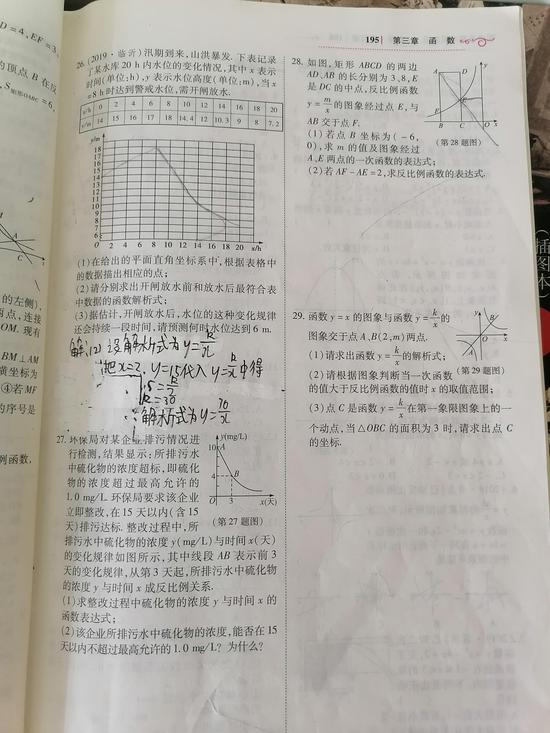 195 第三章 函 数
D=4,EF=3
的顶点 B 在反
S矩形OABC=6,
的左侧),
两点,连接
OM. 现有
BM⊥AM
横坐标为
④若MF
的序号是
例函数.
26. (2019·临沂)汛期到来,山洪暴发. 下表记录
了某水库 20 h 内水位的变化情况,其中 x 表示
时间(单位:h),y 表示水位高度(单位:m),当 x
=8 h 时达到警戒水位,需开闸放水.
x/h 0 2 4 6 8 10 12 14 16 18 20
y/m 14 15 16 17 18 14.4 12 10.3 9 8 7.2
y/m
18
17
16
15
14
13
12
11
10
9
8
7
6
O 2 4 6 8 10 12 14 16 18 20 x/h
(1)在给出的平面直角坐标系中,根据表格中
的数据描出相应的点;
(2)请分别求出开闸放水前和放水后最符合表
中数据的函数解析式;
(3)据估计,开闸放水后,水位的这种变化规律
还会持续一段时间,请预测何时水位达到 6 m.
解:(2)设解析式为y=k/x
把x=2, y=15代入y=k/x中得
15=k/2
k=30
∴解析式为y=
27. 环保局对某企业排污情况进
行检测,结果显示:所排污水
中硫化物的浓度超标,即硫化
物的浓度超过最高允许的
1.0 mg/L. 环保局要求该企业
立即整改,在 15 天以内(含 15
天)排污达标. 整改过程中,所
排污水中硫化物的浓度 y(mg/L)与时间 x(天)
的变化规律如图所示,其中线段 AB 表示前 3
天的变化规律,从第 3 天起,所排污水中硫化物
的浓度 y 与时间 x 成反比例关系.
(1)求整改过程中硫化物的浓度 y 与时间 x 的
函数表达式;
(2)该企业所排污水中硫化物的浓度,能否在 15
天以内不超过最高允许的 1.0 mg/L?为什么?
y(mg/L)
10 A
4 B
O 3 x(天)
(第 27 题图)
28. 如图,矩形 ABCD 的两边
AD,AB 的长分别为 3,8,E
是 DC 的中点,反比例函数
y=m/x的图象经过点 E,与
AB 交于点 F.
(1)若点 B 坐标为(-6,
0),求 m 的值及图象经过
A,E 两点的一次函数的表达式;
(2)若 AF-AE=2,求反比例函数的表达式.
A D y
F E
B C O x
(第 28 题图)
29. 函数 y=x 的图象与函数 y=k/x的
图象交于点 A,B(2,m)两点.
(1)请求出函数 y=k/x的解析式;
(2)请根据图象判断当一次函数
的值大于反比例函数的值时 x 的取值范围;
(3)点 C 是函数 y=k/x在第一象限图象上的一
个动点,当△OBC 的面积为 3 时,请求出点 C
的坐标.
y
B
O x
A
(第 29 题图)
插图本